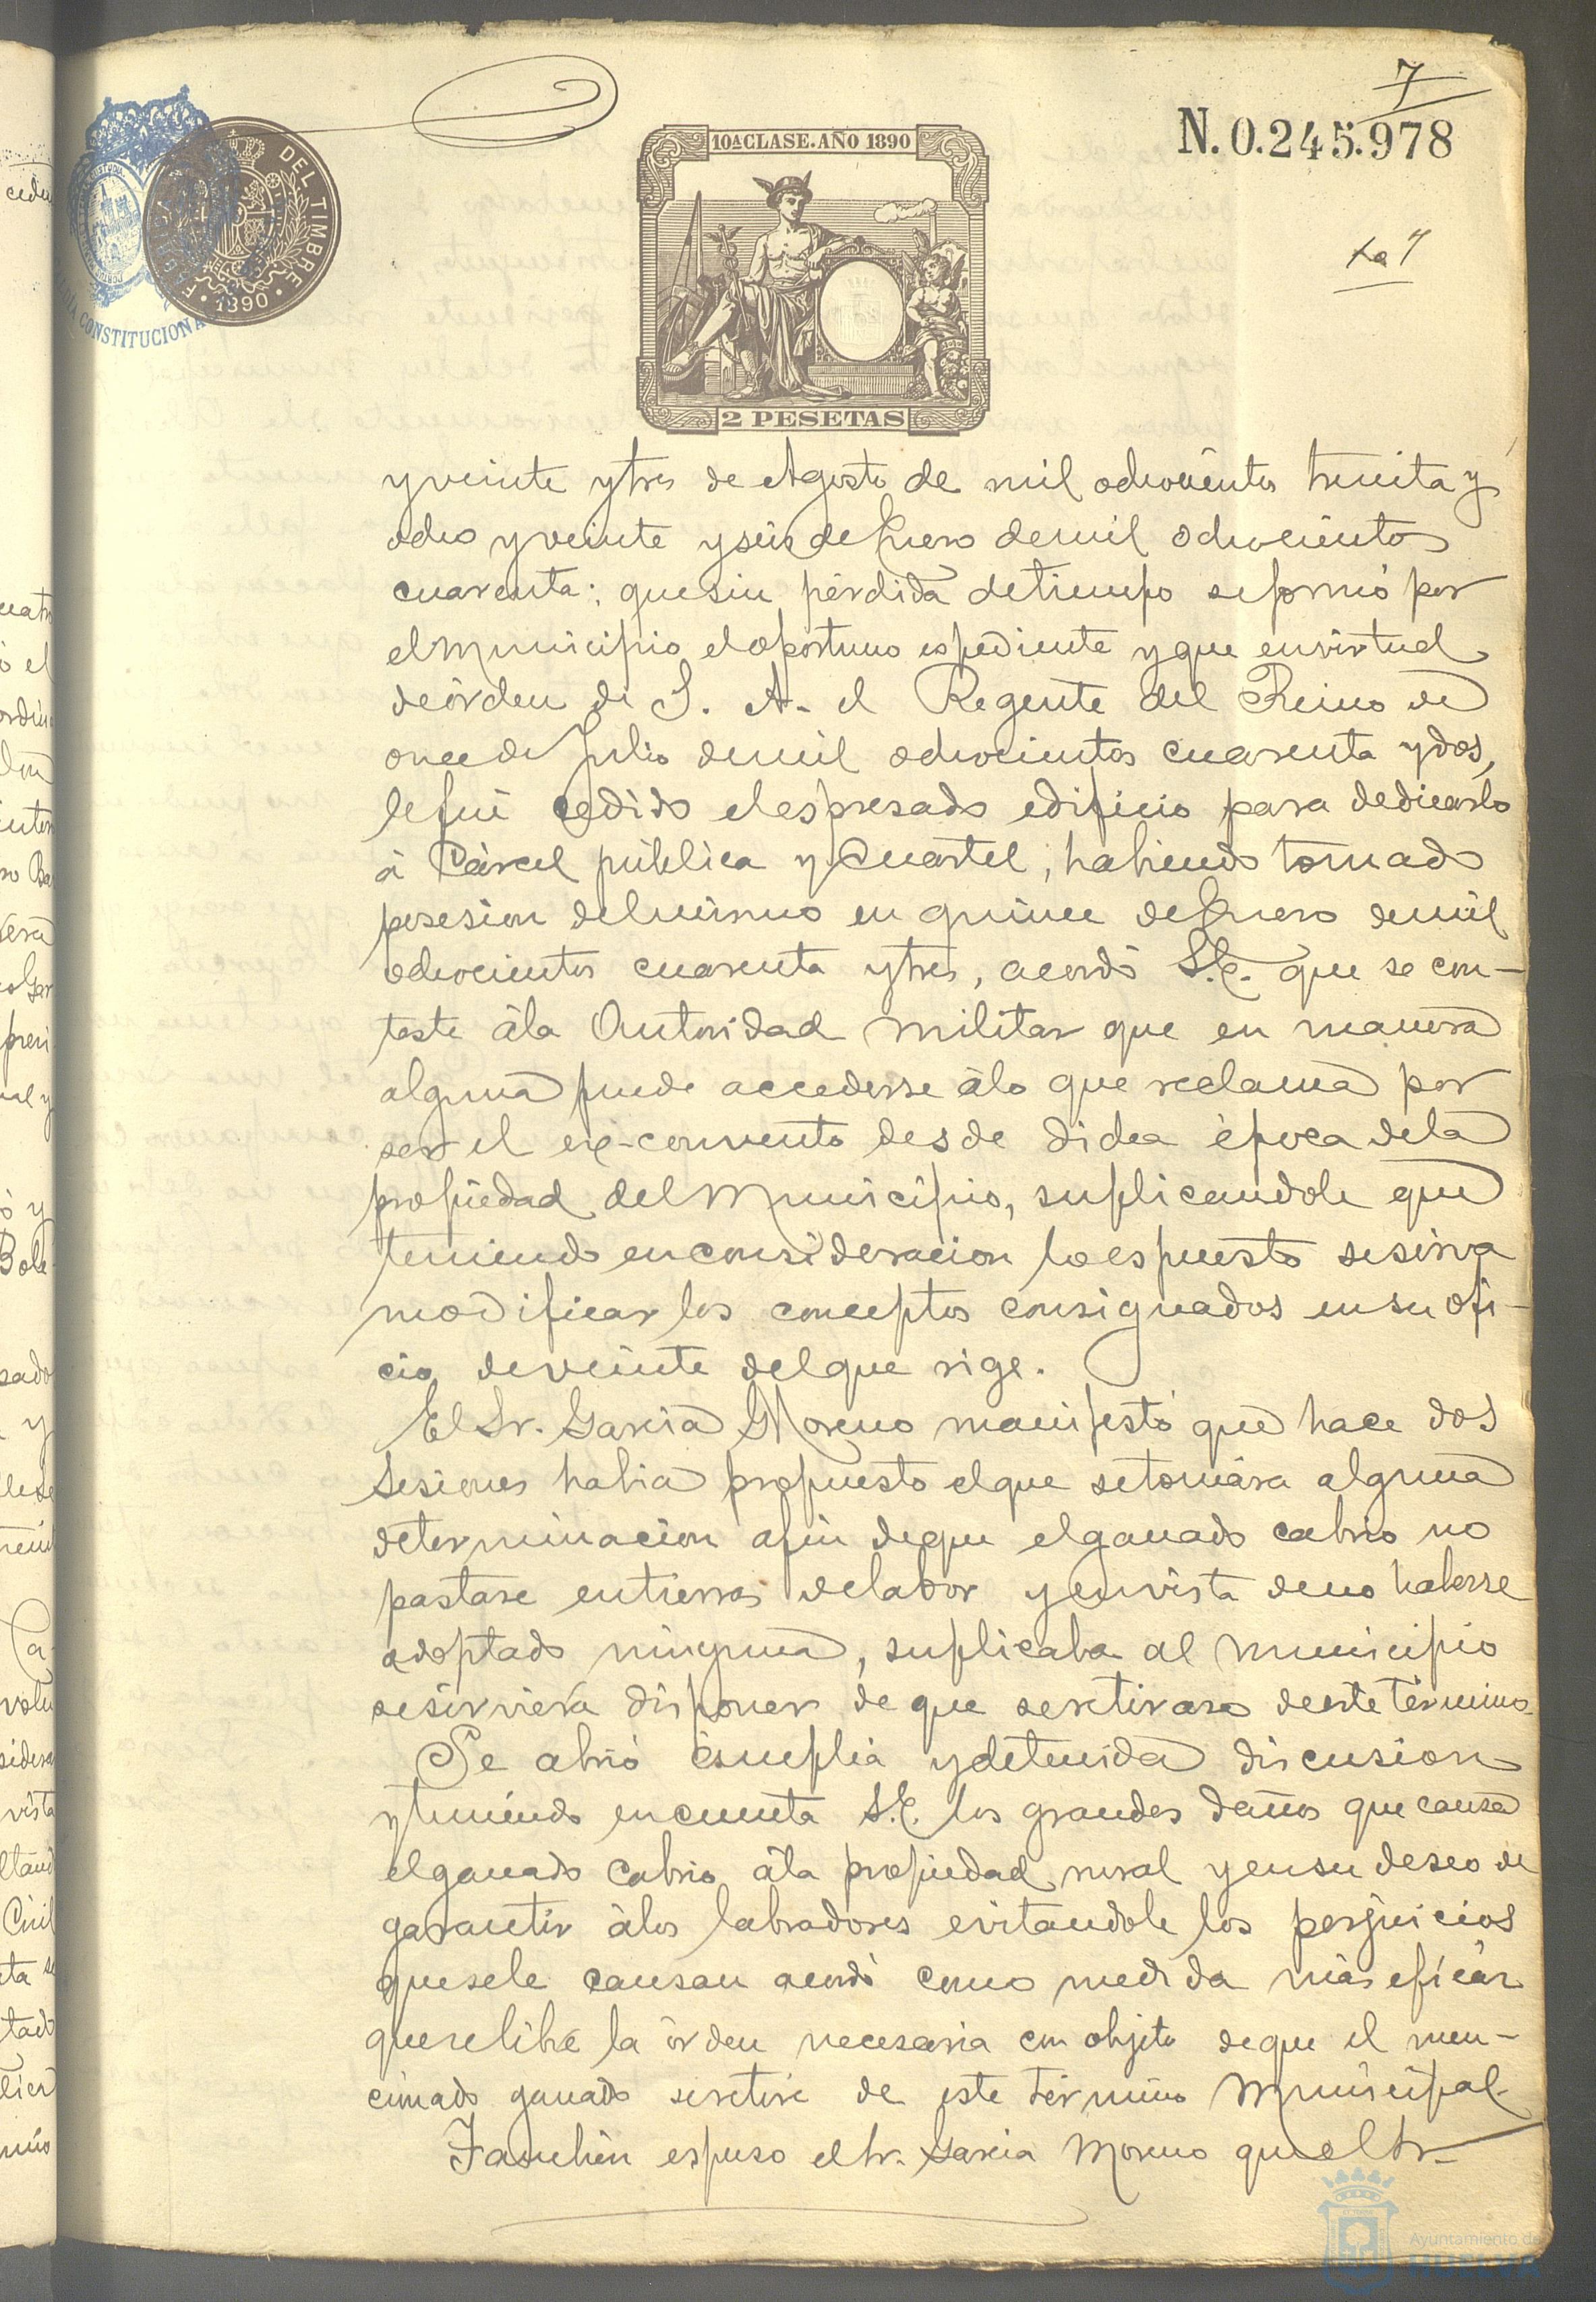 7
N. 0.245.978
10ª CLASE. AÑO 1890
DEL TIMBRE
1890
CONSTITUCIONAL
2 PESETAS
y veinte y tres de Agosto de mil ochocientos treinta y
ocho y veinte y seis de Enero de mil ochocientos
cuarenta; que sin pérdida de tiempo se formó por
el Municipio el oportuno espediente y que en virtud
de órden de S. A. el Regente del Reino de
once de Julio de mil ochocientos cuarenta y dos,
le fué cedido el espresado edificio para dedicarlo
á Cárcel pública y Cuartel, habiendo tomado
posesion del mismo en quince de Enero de mil
ochocientos cuarenta y tres, acordó S.E. que se con-
teste á la Autoridad Militar que en manera
alguna puede accederse á lo que reclama por
ser el ex-convento desde dicha época de la
propiedad del Municipio, suplicandole que
teniendo en consideracion lo espuesto se sirva
modificar los conceptos consignados en su ofi-
cio de veinte del que rige.
El Sr. Garcia Moreno manifestó que hace dos
sesiones habia propuesto el que se tomára alguna
determinacion afin de que el ganado cabrio no
pastase en tierras de labor y en vista de no haberse
adoptado ninguna, suplicaba al Municipio
se sirviera disponer de que se retirase de este término.
Se abrió ámplia y detenida discusion
y teniendo en cuenta S.E. los grandes daños que causa
el ganado cabrio á la propiedad rural y en su deseo de
garantir á los labradores evitandole los perjuicios
que se le causan acordó como medida más eficáz
que se libre la órden necesaria con objeto de que el men-
cionado ganado se retire de este término Municipal.
Tambien espuso el Sr. Garcia Moreno que el Sr.
Ayuntamiento de
HUELVA